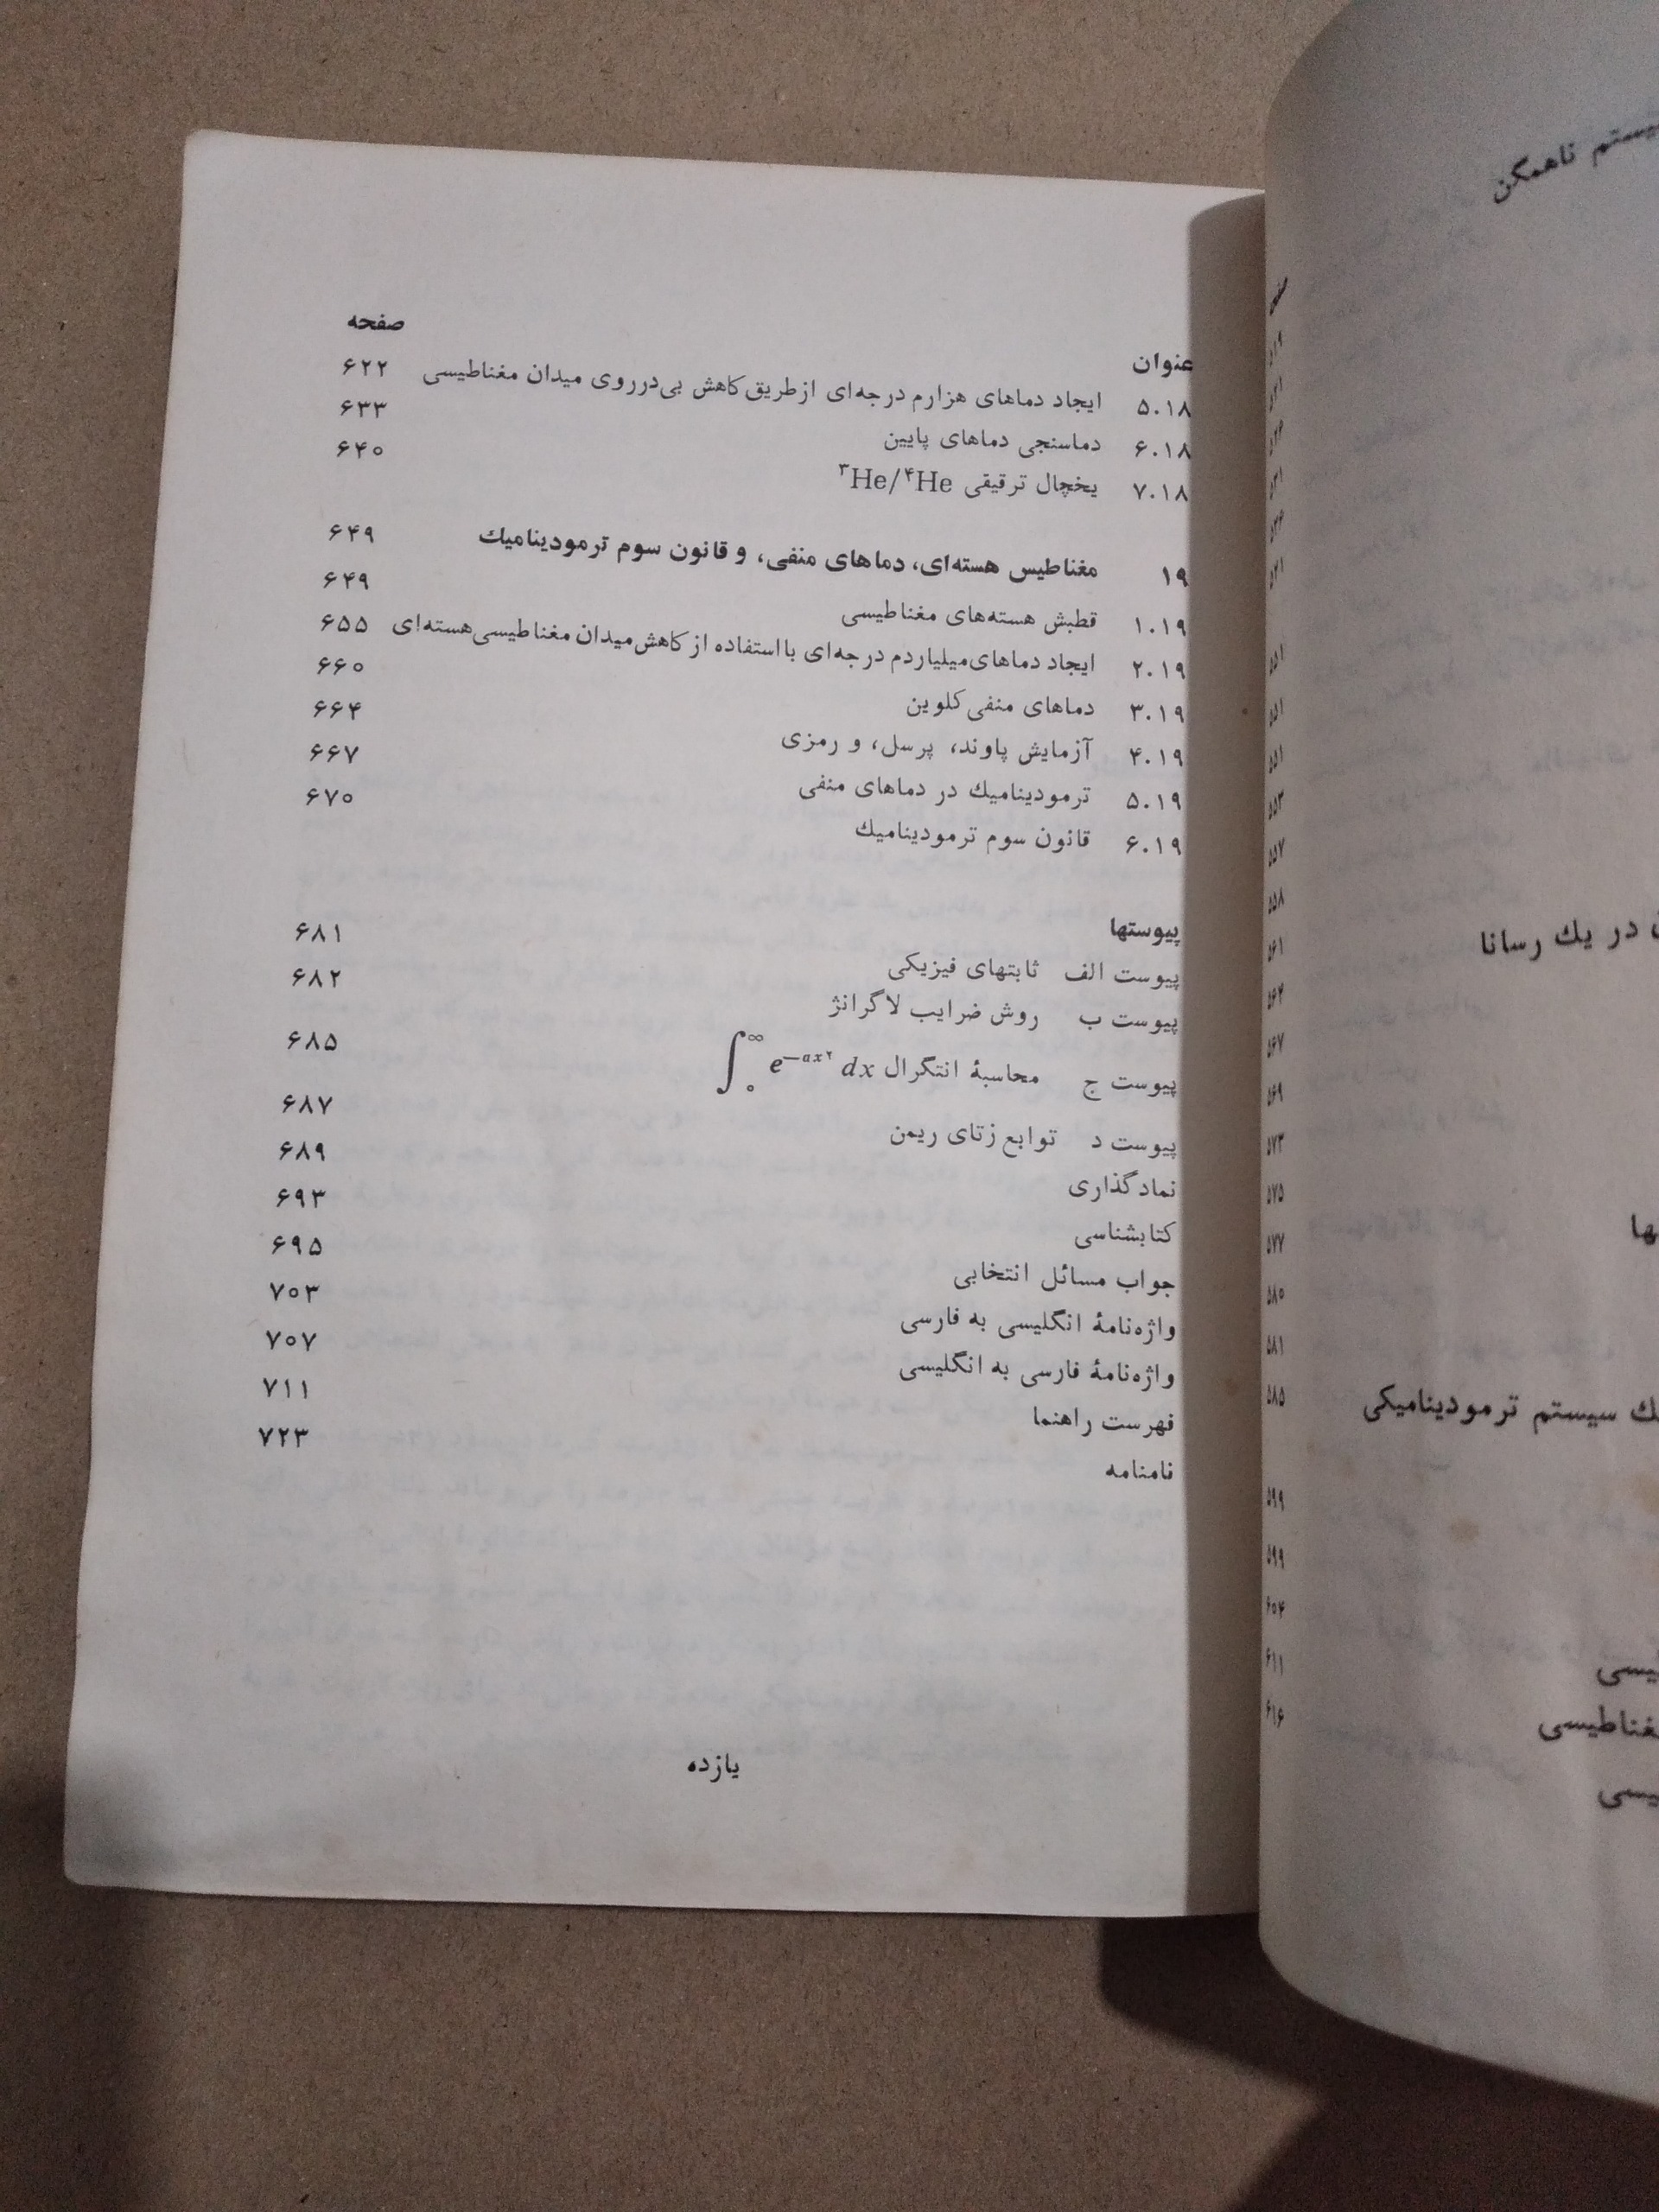 عنوان صفحه
۵.۱۸ ایجاد دماهای هزارم درجه‌ای ازطریق کاهش بی‌درروی میدان مغناطیسی ۶۲۲
۶.۱۸ دماسنجی دماهای پایین ۶۳۳
۷.۱۸ یخچال ترقیقی ³He/⁴He ۶۴۰
۱۹ مغناطیس هسته‌ای، دماهای منفی، و قانون سوم ترمودینامیك ۶۴۹
۱.۱۹ قطبش هسته‌های مغناطیسی ۶۴۹
۲.۱۹ ایجاد دماهای میلیاردم درجه‌ای با استفاده از کاهش میدان مغناطیسی هسته‌ای ۶۵۵
۳.۱۹ دماهای منفی کلوین ۶۶۰
۴.۱۹ آزمایش پاوند، پرسل، و رمزی ۶۶۴
۵.۱۹ ترمودینامیك در دماهای منفی ۶۶۷
۶.۱۹ قانون سوم ترمودینامیك ۶۷۰
پیوستها
پیوست الف ثابتهای فیزیکی ۶۸۱
پیوست ب روش ضرایب لاگرانژ ۶۸۲
پیوست ج محاسبۀ انتگرال ∫₀^∞ e^(−ax^۲) dx ۶۸۵
پیوست د توابع زتای ریمن ۶۸۷
نمادگذاری ۶۸۹
کتابشناسی ۶۹۳
جواب مسائل انتخابی ۶۹۵
واژه‌نامۀ انگلیسی به فارسی ۷۰۳
واژه‌نامۀ فارسی به انگلیسی ۷۰۷
فهرست راهنما ۷۱۱
نامنامه ۷۲۳
یازده
ناهمگن
در یك رسانا
سیستم ترمودینامیکی
۵۵۱
۵۵۱
۵۵۳
۵۵۷
۵۵۸
۵۶۱
۵۶۴
۵۶۷
۵۶۹
۵۷۳
۵۷۵
۵۷۷
۵۸۰
۵۸۱
۵۸۵
۵۹۹
۵۹۹
۶۰۴
۶۱۱
۶۱۶